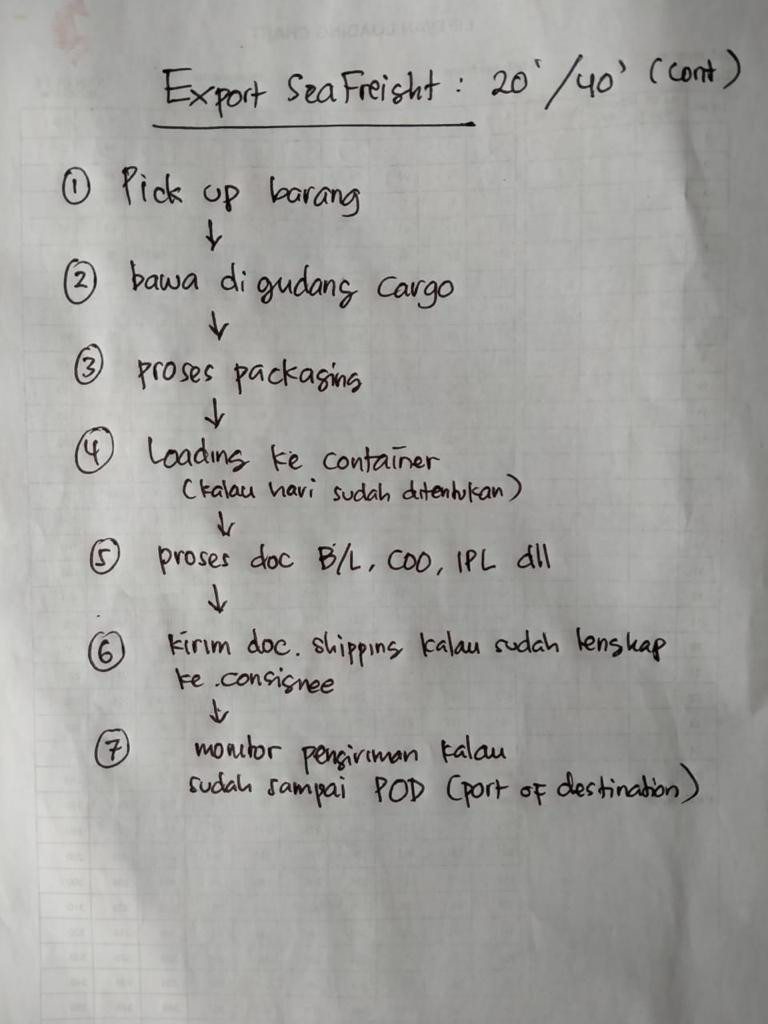 Export Sea Freight : 20' / 40' (cont)
① Pick up barang
↓
② bawa di gudang cargo
↓
③ proses packaging
↓
④ Loading ke container
(kalau hari sudah ditentukan)
↓
⑤ proses doc B/L, COO, IPL dll
↓
⑥ kirim doc. shipping kalau sudah lengkap
ke consignee
↓
⑦ monitor pengiriman kalau
sudah sampai POD (port of destination)